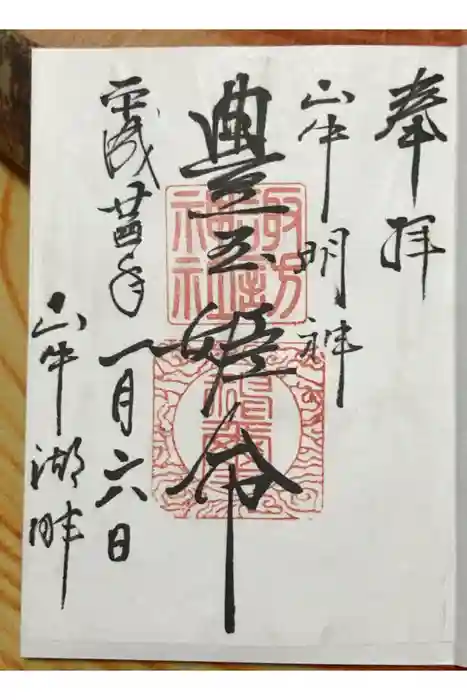 奉拝
山中明神
豊玉姫命
諏訪神社
平成廿四年一月六日
山中湖畔